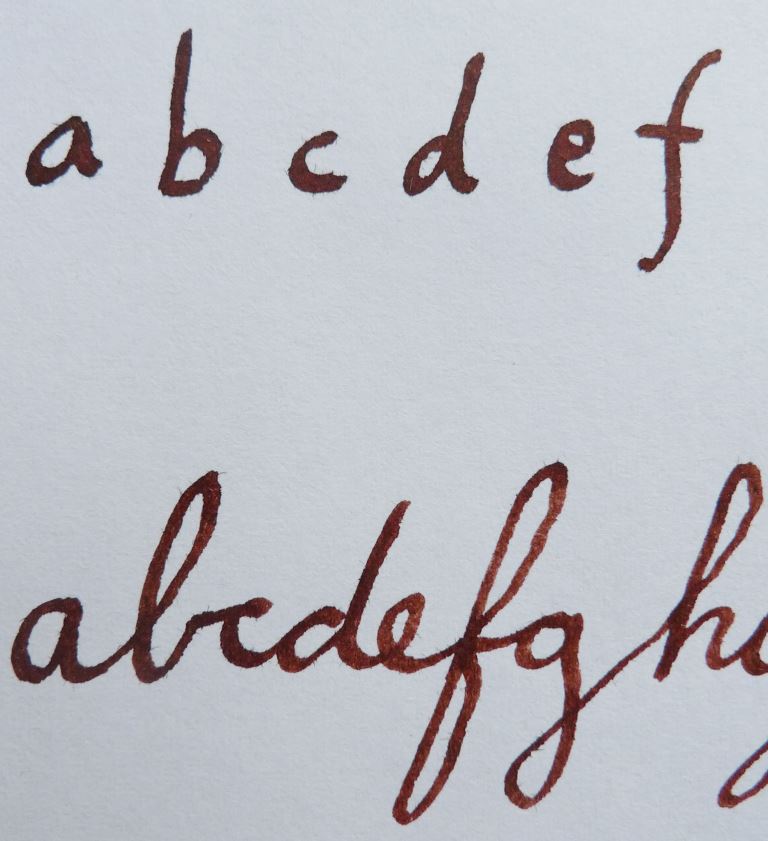 a b c d e f
abcdefgh